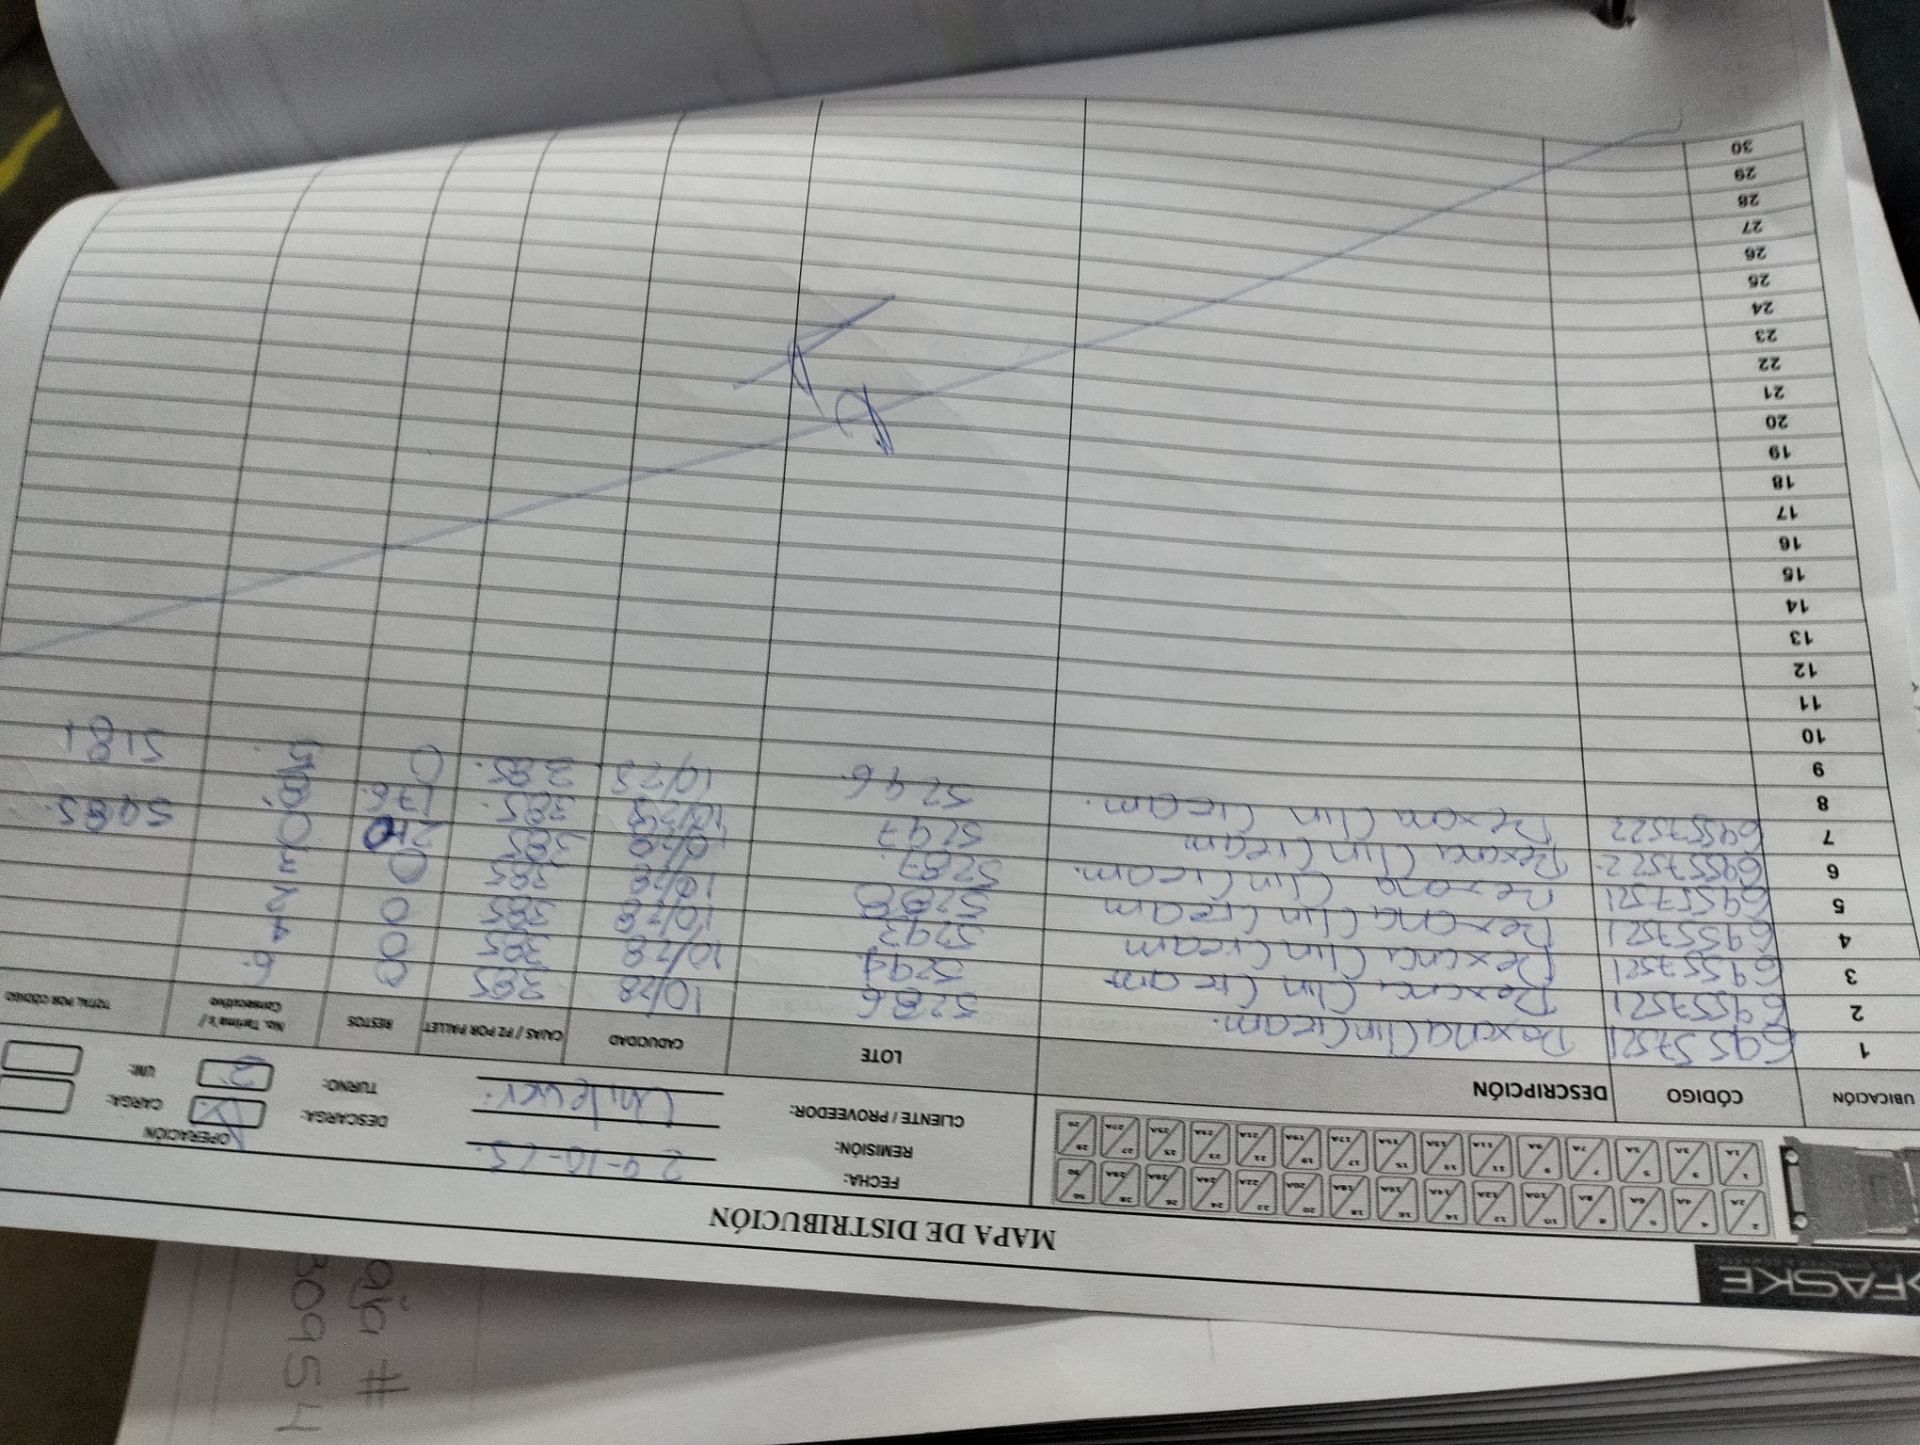 FASKE
MAPA DE DISTRIBUCIÓN
FECHA: 29-10-25.
REMISIÓN:
CLIENTE / PROVEEDOR: Unilever.
OPERACIÓN
DESCARGA: CARGA:
TURNO: 2 UNI:
UBICACIÓN CÓDIGO DESCRIPCIÓN LOTE CADUCIDAD CAJAS / PZ POR PALLET RESTOS No. Tarima's / Consecutivo TOTAL POR CÓDIGO
1 69557521 Rexona Clin Cream. 5286 10/28 385 0 6.
2 69557521 Rexona Clin Cream 5294 10/28 385 0 4
3 69557521 Rexona Clin Cream 5293 10/28 385 0 2
4 69557521 Rexona Clin Cream 5288 10/28 385 0 3
5 69557521 Rexona Clin Cream. 5287 10/28 385 210 0 5985.
6 69557522 Rexona Clin Cream 5297 10/28 385. 176. 8.
7 69557522 Rexona Clin Cream. 5296. 10/28 385. 0 5. 5181
8
9
10
11
12
13
14
15
16
17
18
19
20
21
22
23
24
25
26
27
28
29
30
aja #
30954